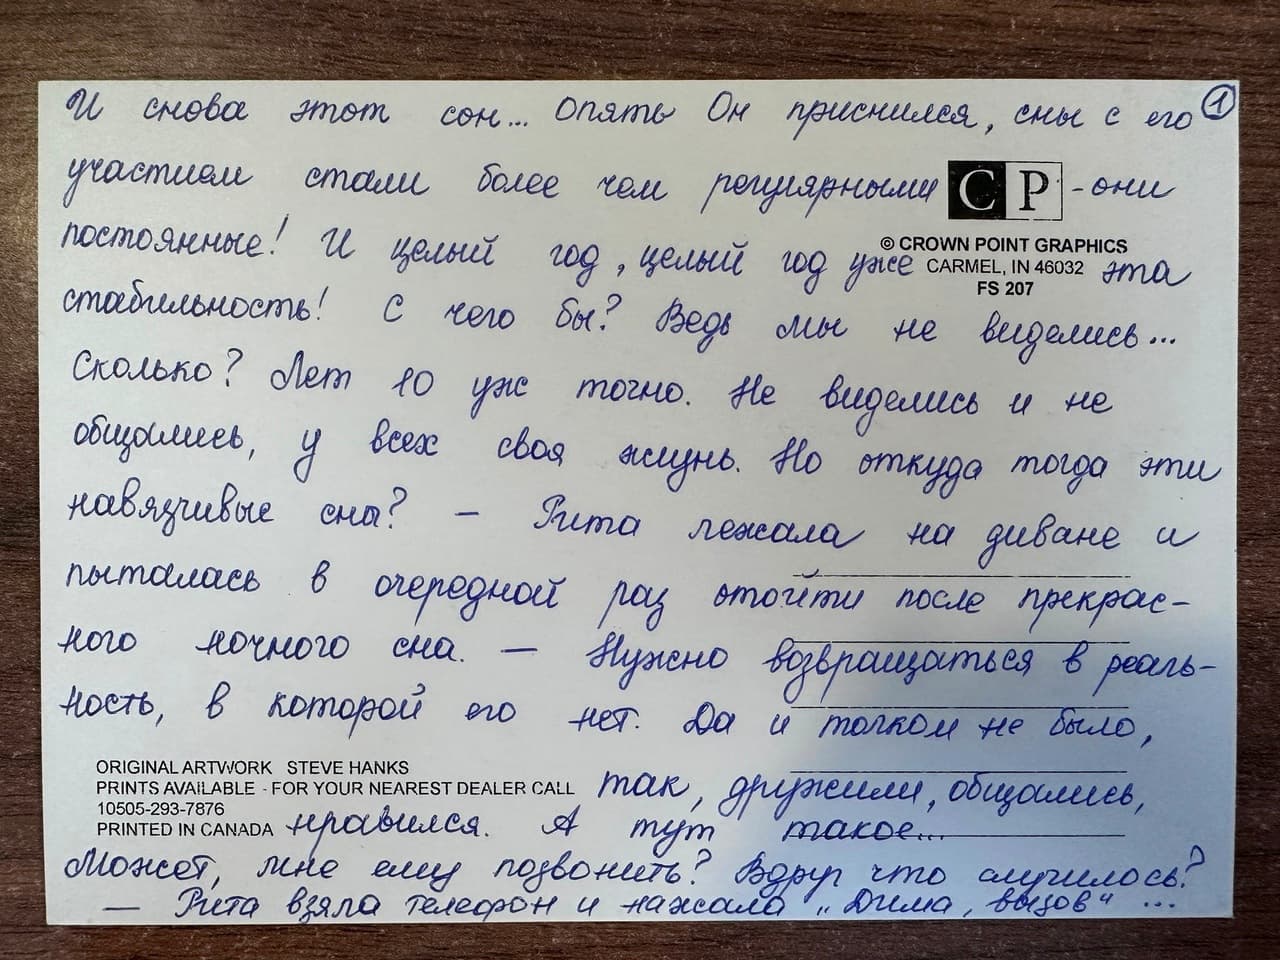 И снова этот сон... опять Он приснился, сны с его ①
участием стали более чем регулярными CP - они
постоянные! И целый год, целый год уже эта
© CROWN POINT GRAPHICS
CARMEL, IN 46032
FS 207
стабильность! С чего бы? Ведь мы не виделись...
Сколько? Лет 10 уж точно. Не виделись и не
общались, у всех своя жизнь. Но откуда тогда эти
навязчивые сны? – Рита лежала на диване и
пыталась в очередной раз отойти после прекрас-
ного ночного сна. – Нужно возвращаться в реаль-
ность, в которой его нет. Да и толком не было,
ORIGINAL ARTWORK STEVE HANKS
PRINTS AVAILABLE - FOR YOUR NEAREST DEALER CALL
10505-293-7876
PRINTED IN CANADA
так, дружили, общались,
нравился. А тут такое...
Может, мне ему позвонить? Вдруг что случилось?
– Рита взяла телефон и нажала „Дима, вызов“ ...